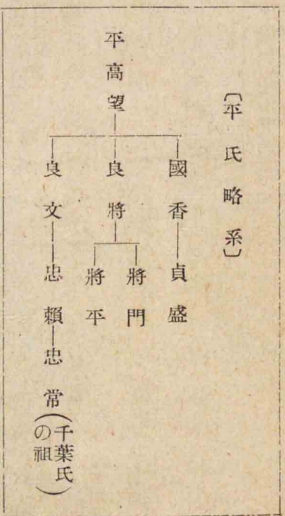 〔平氏略系〕
平高望
國香―貞盛
良將
將門
將平
良文―忠賴―忠常(千葉氏の祖)